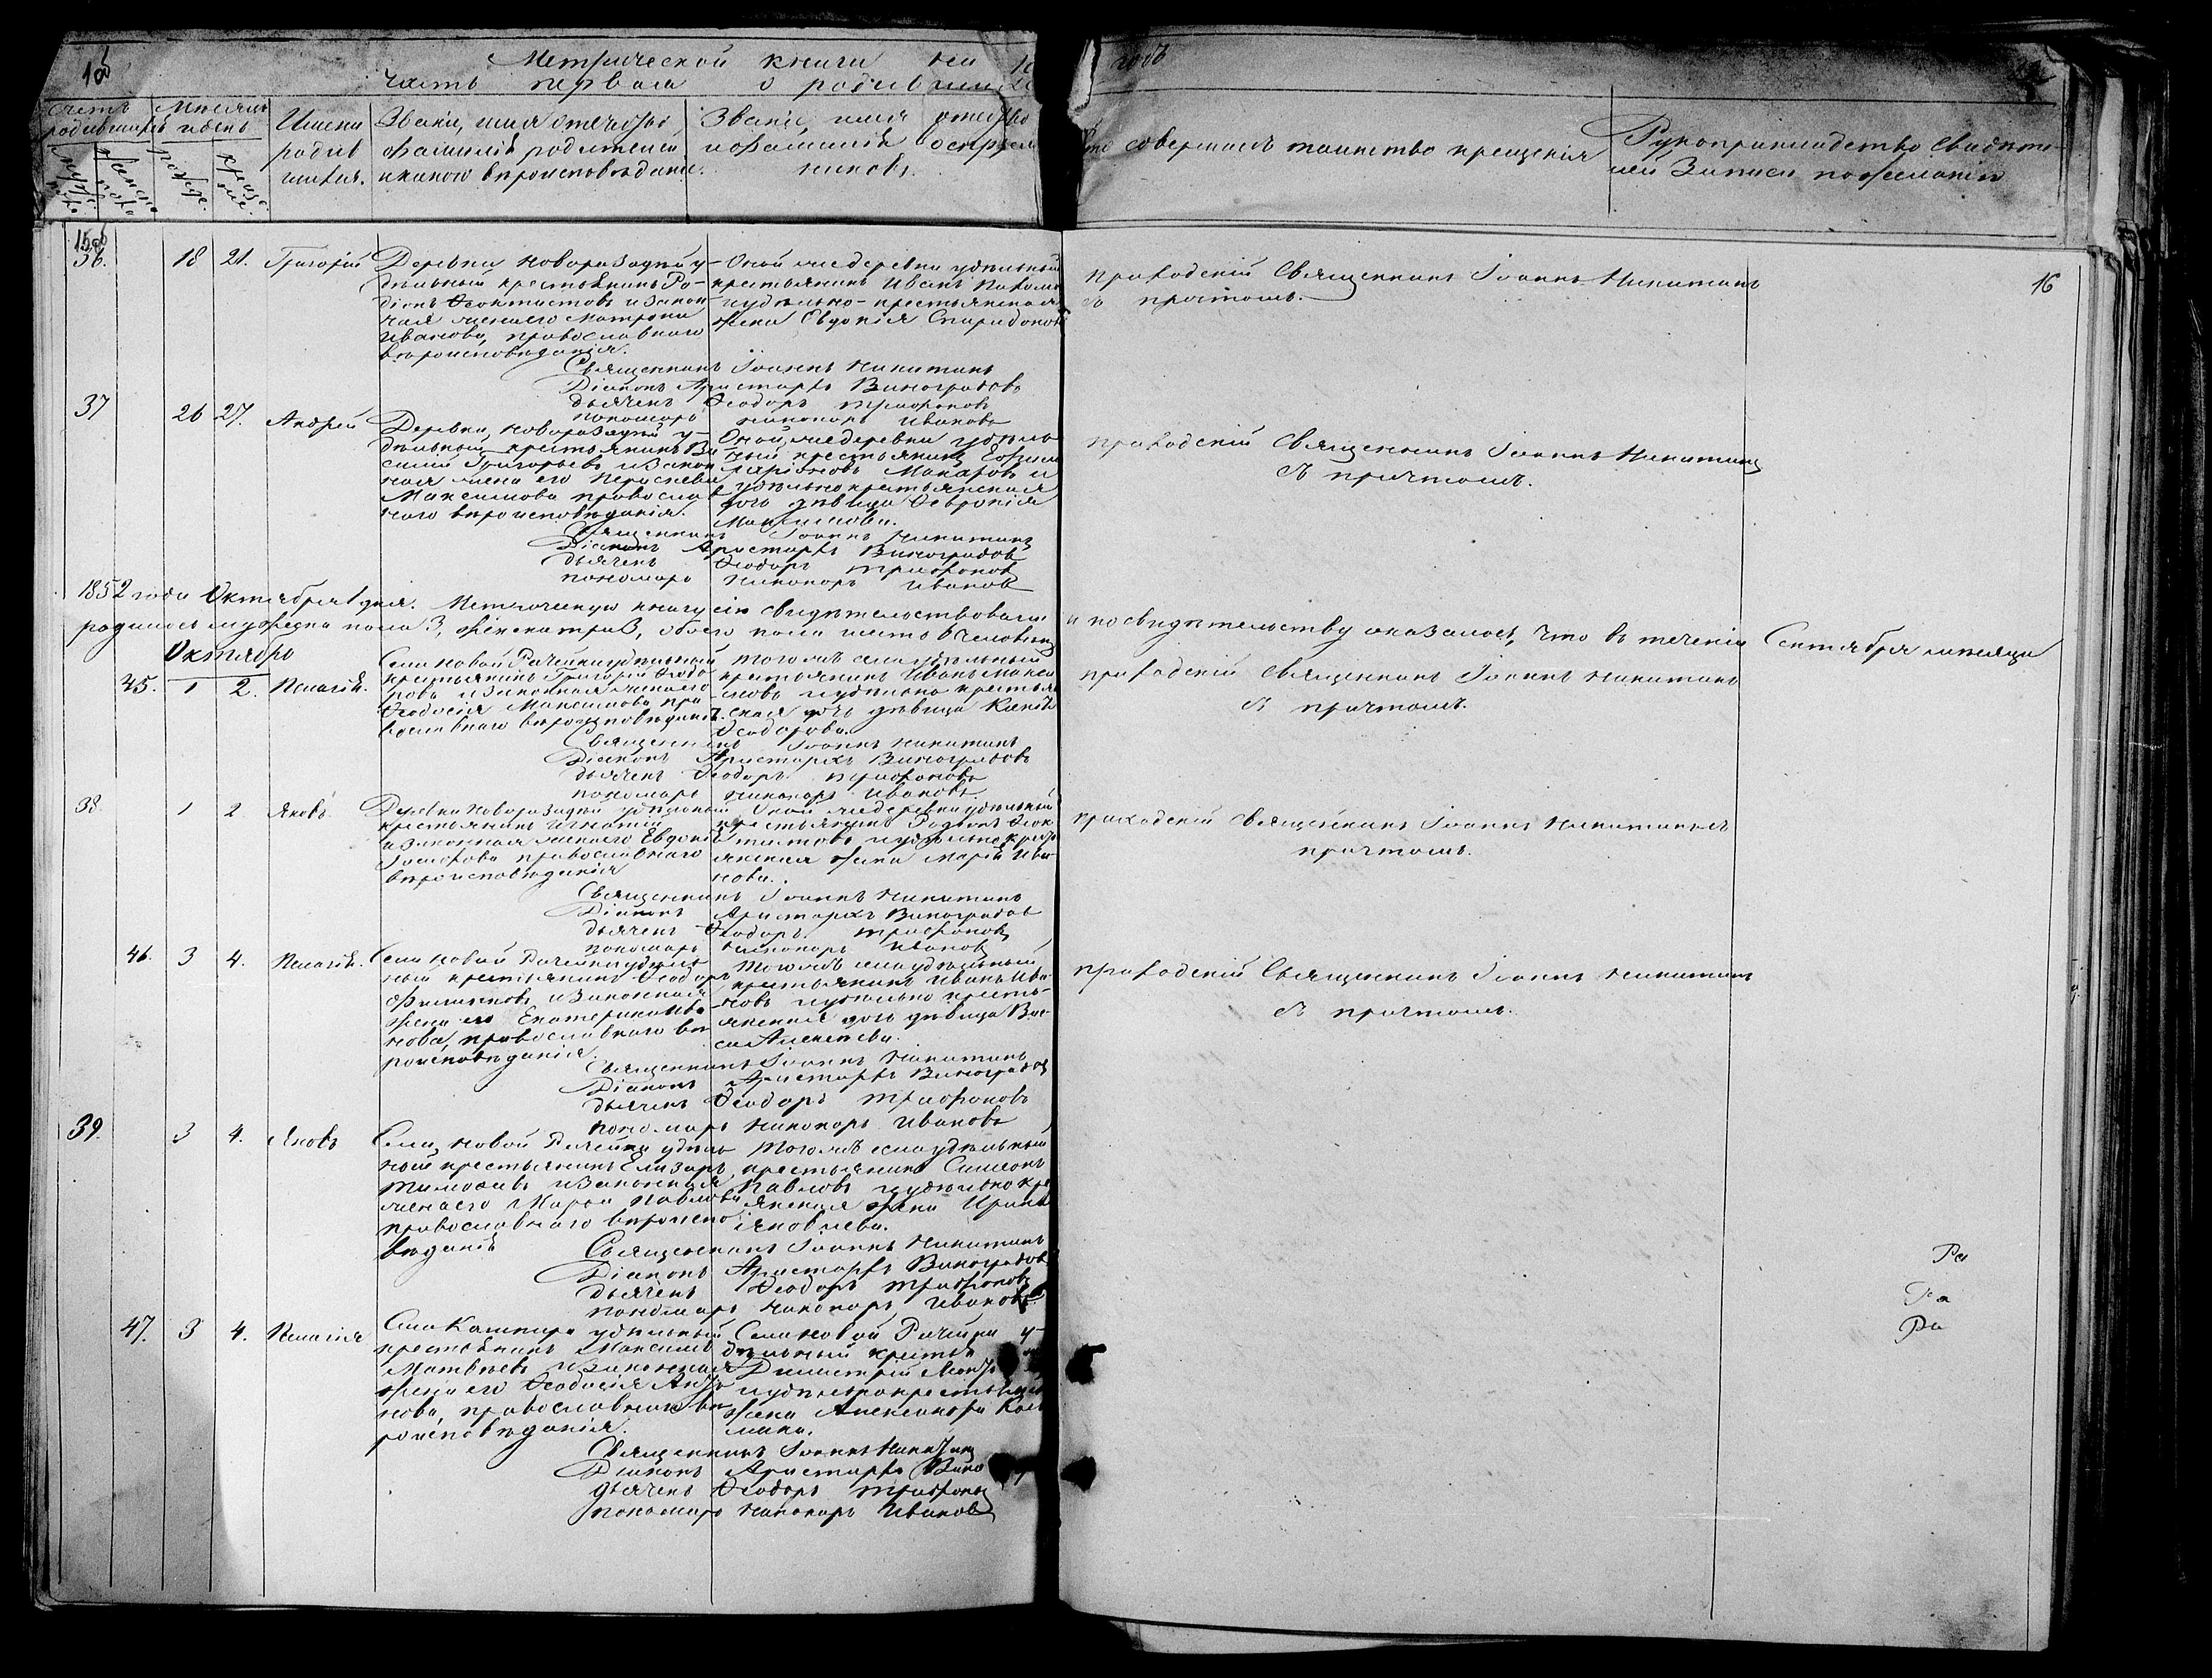 Метрической книги на 18
часть первая о родившихся
годъ
Счетъ родившихся
Мѣсяцъ и день
мужеска пола
женска пола
рожде.
креще
нiе.
Имена
родив
шихъ.
Званiе, имя отечество,
фамилiя родителей
и какого вѣроисповѣданiе.
Званiе, имя отчество
и фамилiя воспрiем
никовъ.
Кто совершалъ таинство крещенiя
Рукоприкладство свидѣте-
лей записи по желанiю
15об
16
36. 18 21. Григорiй
Деревни Новорозадной у-
дѣльный крестьянинъ Ро-
дiонъ Феоктистовъ и закон
ная жена его Матрона
Иванова, православнаго
вѣроисповѣданiя.
Оной же деревни удѣльный
крестьянинъ Иванъ
и удѣльно-крестьянская
жена Евдокiя Спиридонова
Приходскiй Священникъ Iоаннъ Никитинъ
съ причтомъ.
Священникъ Iоаннъ Никитинъ
Дiаконъ Аристархъ Виноградовъ
дьячекъ Феодоръ Трифоновъ
пономарь Никаноръ Ивановъ
37 26 27. Андрей
Деревни Новорозадной у-
дѣльный крестьянинъ Ва
силiй Григорьевъ и закон
ная жена его Параскева
Максимова православ
наго вѣроисповѣданiя.
Оной же деревни удѣль
ный крестьянинъ
Макаровъ и
удѣльно крестьянская
дочь дѣвица Феврониiя
Максимова.
Приходскiй Священникъ Iоаннъ Никитинъ
съ причтомъ.
Священникъ Iоаннъ Никитинъ
Дiаконъ Аристархъ Виноградовъ
дьячекъ Феодоръ Трифоновъ
пономарь Никаноръ Ивановъ
1852 года Октября 1 дня. Метрическую книгу сiю свидѣтельствовали и по свидѣтельству оказалось, что въ теченiи Сентября мѣсяца
родилось мужеска пола 3, женска три 3, обоего пола шесть 6 человѣкъ
Октябрь
45. 1 2. Пелагiя.
Села Новой Рачейки удѣльный
крестьянинъ Григорiй Федо
ровъ и законная жена его
Феодосiя Максимова пра
вославнаго вѣроисповѣданiя.
Того жъ села удѣльный
крестьянинъ Иванъ Макси
мовъ и удѣльно крестьян
ская дочь дѣвица Ксенiя
Феодорова.
приходскiй Священникъ Iоаннъ Никитинъ
съ причтомъ.
Священникъ Iоаннъ Никитинъ
Дiаконъ Аристархъ Виноградовъ
дьячекъ Феодоръ Трифоновъ
пономарь Никаноръ Ивановъ
38. 1 2 Яковъ
Деревни Новорозадной удѣльный
крестьянинъ Игнатiй
и законная жена его Евдокiя
православнаго
вѣроисповѣданiя
Оной же деревни удѣльный
крестьянинъ Родiонъ Феок
тистовъ и удѣльно крест
янская жена Марiя Ива
нова.
приходскiй Священникъ Iоаннъ Никитинъ съ
причтомъ.
Священникъ Iоаннъ Никитинъ
Дiаконъ Аристархъ Виноградовъ
дьячекъ Феодоръ Трифоновъ
пономарь Никаноръ Ивановъ
46. 3 4. Пелагiя.
Села Новой Рачейки удѣль
ный крестьянинъ Феодоръ
Филипповъ и законная
жена его Екатерина Ива
нова, православнаго вѣ
роисповѣданiя.
Того жъ села удѣльный
крестьянинъ Иванъ Ива
новъ и удѣльно кресть-
янская дочь дѣвица Вас-
са Алексѣева.
приходскiй Священникъ Iоаннъ Никитинъ
съ причтомъ.
Священникъ Iоаннъ Никитинъ
Дiаконъ Аристархъ Виноградовъ
дьячекъ Феодоръ Трифоновъ
пономарь Никаноръ Ивановъ
39. 3 4. Яковъ
Села Новой Рачейки удѣль
ный крестьянинъ Елизаръ
Тимофѣевъ и законная
жена его Марфа Павлова
православнаго вѣроиспо
вѣданiя
Того жъ села удѣльный
крестьянинъ Симеонъ
Павловъ и удѣльно кре
янская жена Ирина
Яковлева.
Священникъ Iоаннъ Никитинъ
Дiаконъ Аристархъ Виноградовъ
дьячекъ Феодоръ Трифоновъ
пономарь Никаноръ Ивановъ
47. 3 4. Пелагiя
Села Кашпира удѣльный
крестьянинъ Максимъ
Матвѣевъ и законная
жена его Феодосiя Анто
нова, православнаго вѣ
роисповѣданiя.
Села Новой Рачейки у-
дѣльный кресть
Димитрiй
и удѣльнокрестьянск
жена Александра Кось
мина.
Священникъ Iоаннъ Никитинъ
Дiаконъ Аристархъ Вино
дьячекъ Феодоръ Трифоновъ
пономарь Никаноръ Ивановъ
Ра
Ра
Ра